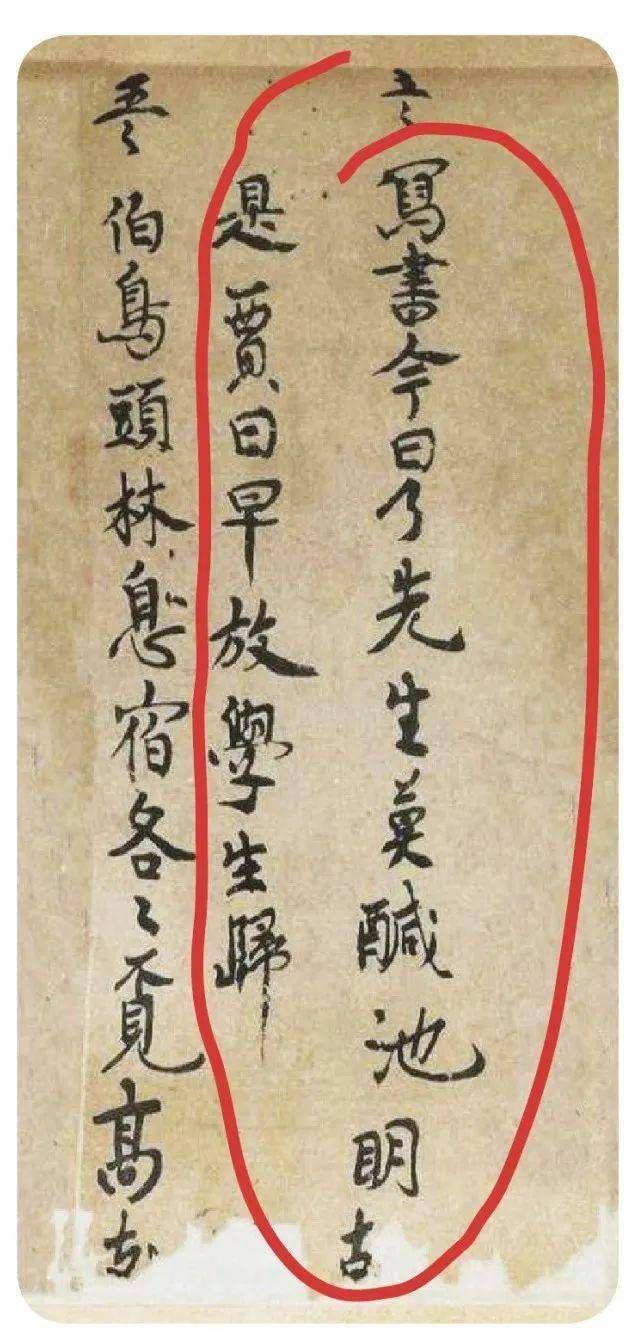 五言寫書今日了先生莫醎池明
是賈日早放學生歸
五言伯鳥頭林息宿各〻覔高